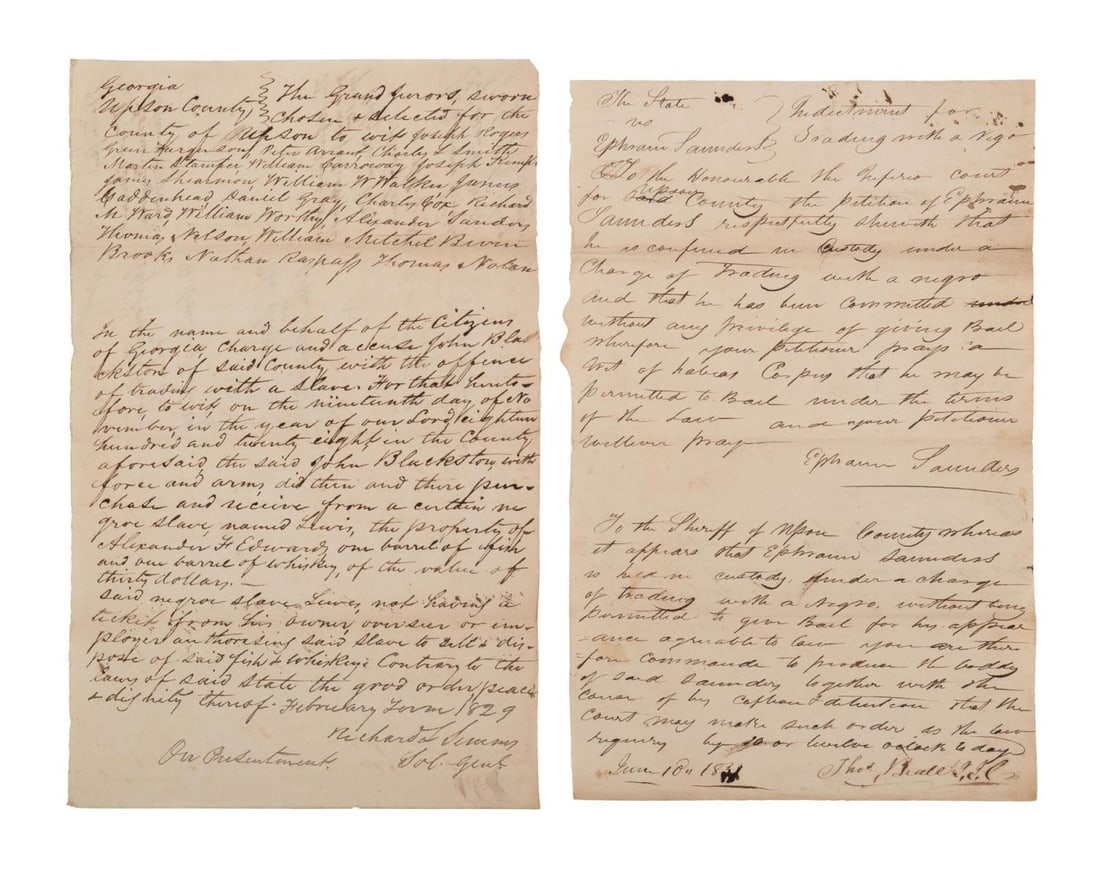 Georgia
Upson County } The Grand jurors, sworn
Chosen & selected for the
County of Upson to wit Joseph Rogers
Green Furgerson, Peter Charles L Smith
Martin Stamper William Carroway Joseph Kemp
James Shearmon, William W Walker James
Caddenhead Daniel Gray, Charles Cox Richard
M Ward William Worthy, Alexander Sanders
Thomas Nelson, William Mitchel Biven
Brooks Nathan Raspass Thomas Nolan
In the name and behalf of the Citizens
of Georgia, Charge and accuse John Bla
ckston of said County with the offence
of trading with a slave. For that hereto-
fore, to wit, on the nineteenth day of No
vember, in the year of our Lord, eighteen
hundred and twenty eight, in the County
aforesaid, the said John Blackston with
force and arms, did then and there pur-
chase and receive from a certain ne
groe slave, named Lewis, the property of
Alexander F Edwards one barrel of fish
and one barrel of whiskey, of the value of
thirty dollars.—
said negroe slave Lewis, not having a
ticket from his owner overseer or em-
ployer authorising said slave to sell & dis-
pose of said fish & whiskey: Contrary to the
laws of said State the good order, peace
& dignity thereof. February Term 1829
Richard L Simms
On Presentment. Sol. Genl
The State
vs
Ephraim Saunders } Indictment for
Trading with a Nigo
To the Honourable the Inferio court
for Upson County the petition of Ephraim
Saunders respectfully sheweth that
he is confined in Custody under a
Charge of Trading with a negro
and that he has been committed
without any privilige of giving Bail
wherefore your petitioner prays a
writ of habeas Corpus that he may be
permitted to Bail under the terms
of the Law and your petitioner
will ever pray
Ephraim Saunders
To the Sheriff of Upson County whereas
it appears that Ephraim Saunders
is held in custody under a charge
of trading with a Negro, without being
permitted to give Bail for his appear
=ance agreable to law you are there
fore commande to produce the boddy
of said Saunders together with the
cause of his caption & detention that the
Court may make such order as the law
requires by 10 or twelve oclock to day
June 10th 1831 Thos Beall J.I.C